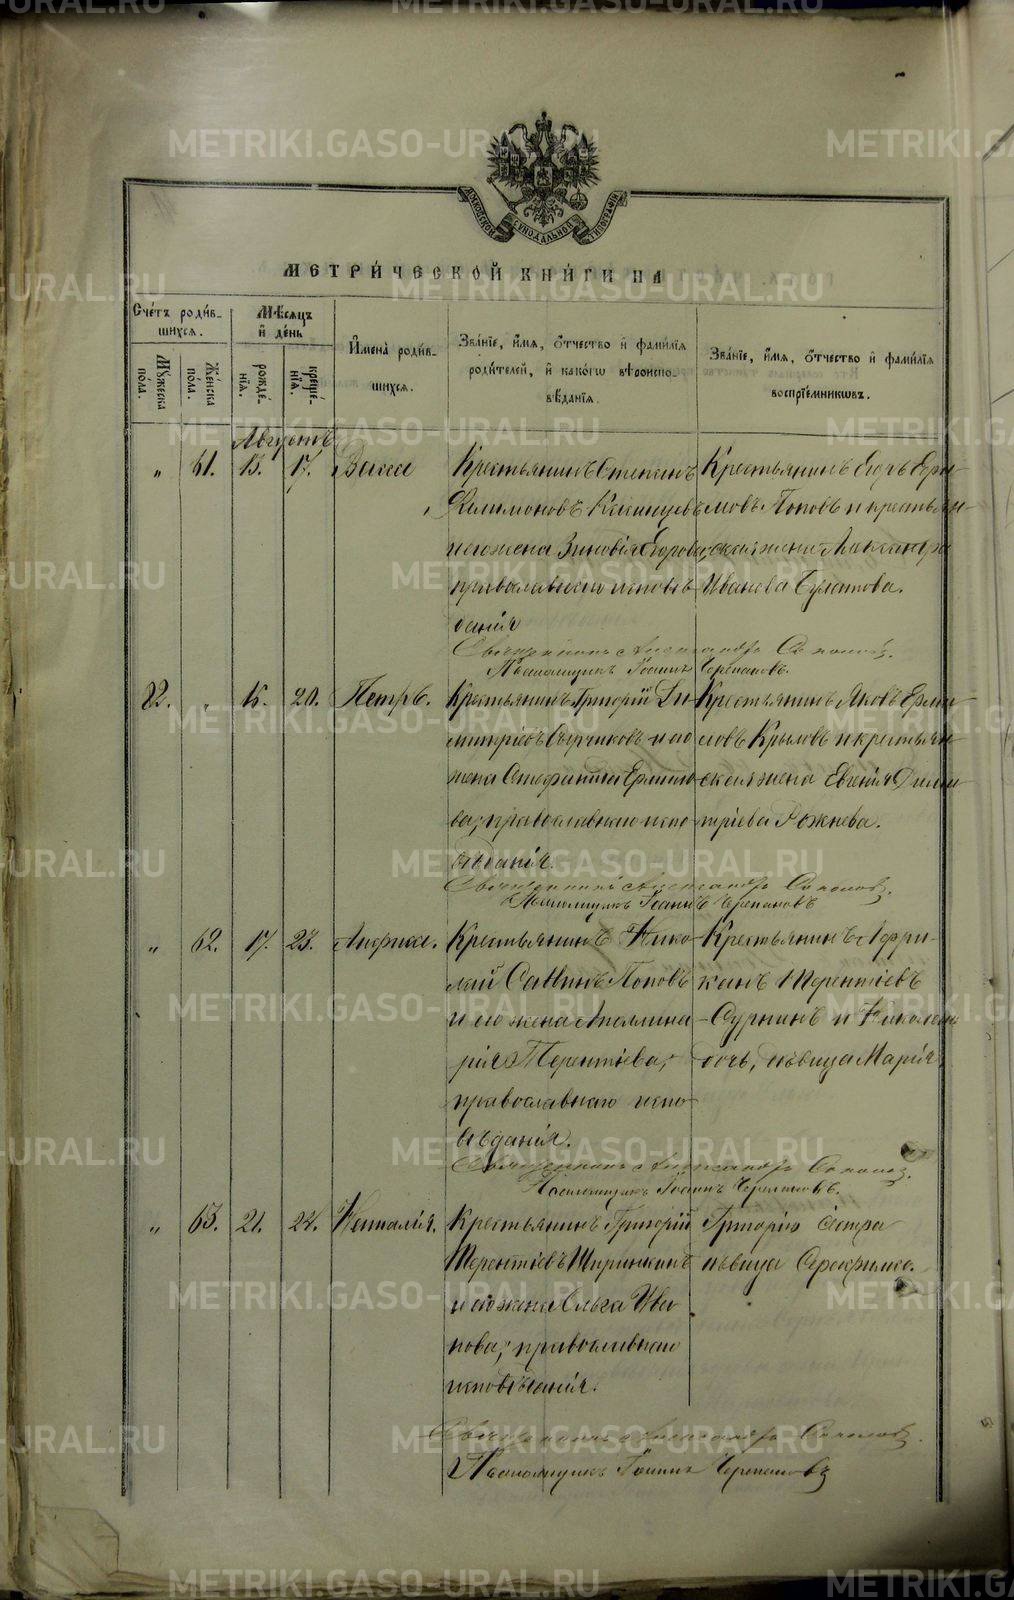 METRIKI.GASO-URAL.RU
МОСКОВСКОЙ СУНОДАЛЬНОЙ ТИПОГРАФІИ
МЕТРИ́ЧЕСКОЙ КНИ́ГИ НА
Сче́тъ роди́в-
шихся.
Му́жеска по́ла.
Же́нска по́ла.
Мѣ́сяцъ
и҆ де́нь
рожде́нїѧ.
креще́нїѧ.
И҆мена̀ роди́в-
шихся.
Зва́нїе, и҆́мѧ, о҆́тчество и҆ фами́лїѧ
роди́телей, и҆ како́гѡ вѣроиспо-
вѣ́данїѧ.
Зва́нїе, и҆́мѧ, о҆́тчество и҆ фами́лїѧ
воспрїе́мникѡвъ.
Августъ
„ 61. 15. 17. Васса
Крестьянинъ Степанъ
Филимоновъ
и его жена Зиновія Егорова,
православнаго исповѣ-
данія
Крестьянинъ Егоръ Ефи-
мовъ Поповъ и крестьян-
ская жена Александра
Иванова Булатова.
Священникъ Александръ
Псаломщикъ Іоаннъ Черепановъ.
82. „ 16. 20. Петръ.
Крестьянинъ Григорій Ди-
митріевъ и его
жена Стефанида
ва, православнаго испо-
вѣданія.
Крестьянинъ Яковъ
ловъ Крыловъ и крестьян-
ская жена Евгенія Дими-
тріева Рожнева.
Священникъ Александръ
Псаломщикъ Іоаннъ Черепановъ
„ 62. 17. 23. Анфиса.
Крестьянинъ Нико-
лай Саввинъ Поповъ
и его жена Аполлина-
рія Терентіева,
православнаго испо-
вѣданія.
Крестьянинъ Афри-
канъ Терентіевъ
Суринъ и Николая
дочь, дѣвица Марія.
Священникъ Александръ
Псаломщикъ Іоаннъ Черепановъ.
„ 63. 21. 24. Наталія.
Крестьянинъ Григорій
Терентіевъ Ширинкинъ
и его жена Ольга Ива-
нова, православнаго
исповѣданія.
Григорія сестра
дѣвица
Священникъ Александръ
Псаломщикъ Іоаннъ Черепановъ